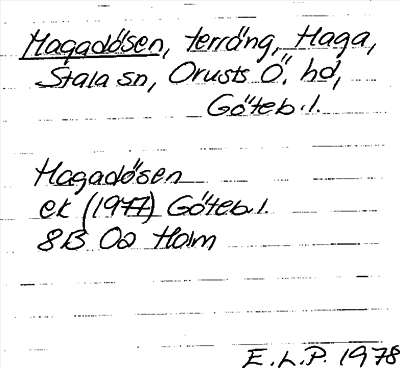 Hagadösen, terräng, Haga,
Stala sn, Orusts Ö. hd,
Göteb. l.
Hagadösen
ek (1977) Göteb. l.
8B 0a Holm
E.L.P. 1978